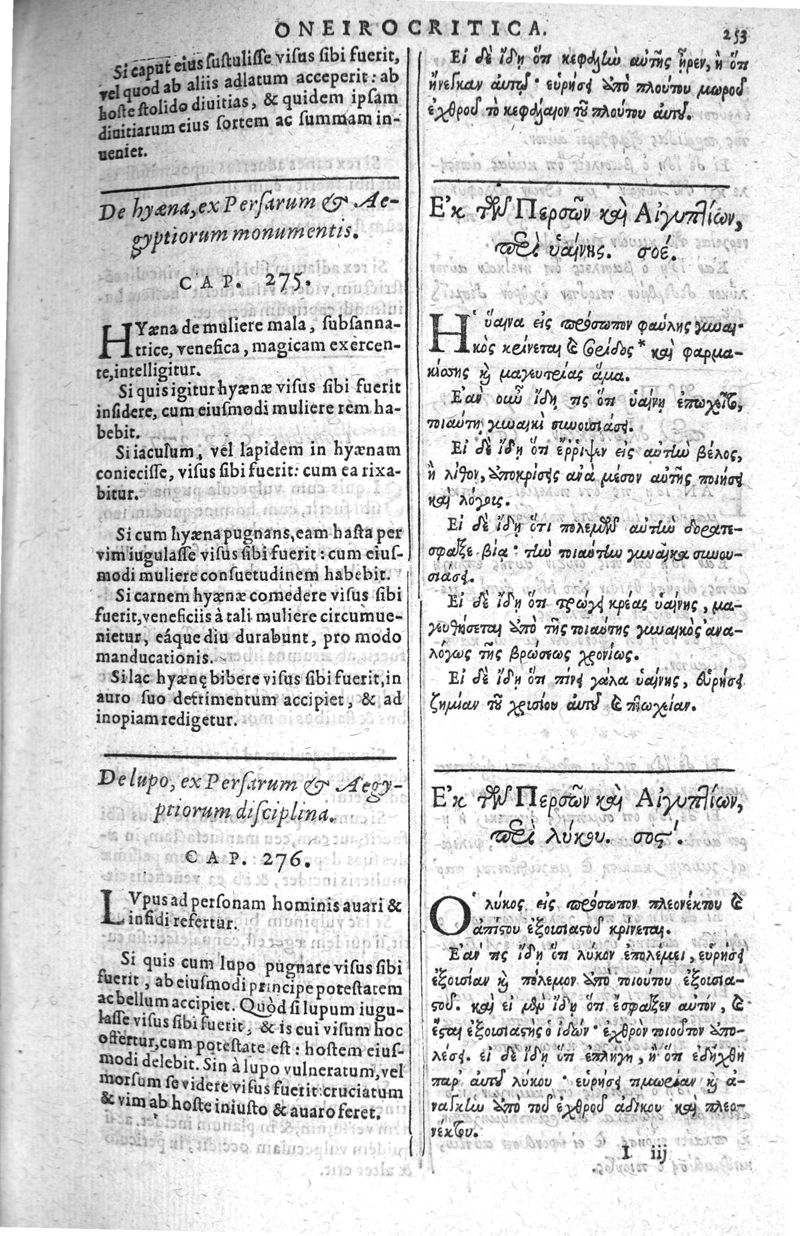 ONEIROCRITICA. 253
Si caput eius sustulisse visus sibi fuerit,
vel quod ab aliis adlatum acceperit: ab
hoste stolido diuitias, & quidem ipsam
diuitiarum eius sortem ac summam in-
ueniet.
De hyæna, ex Persarum & Ae-
gyptiorum monumentis.
CAP. 275.
HYæna de muliere mala, subsanna-
trice, venefica, magicam exercen-
te, intelligitur.
Si quis igitur hyænæ visus sibi fuerit
insidere, cum eiusmodi muliere rem ha-
bebit.
Si iaculum, vel lapidem in hyænam
coniecisse, visus sibi fuerit: cum ea rixa-
bitur.
Si cum hyæna pugnans, eam hasta per
vim iugulasse visus sibi fuerit: cum eius-
modi muliere consuetudinem habebit.
Si carnem hyænæ comedere visus sibi
fuerit, veneficiis à tali muliere circumue-
nietur, eáque diu durabunt, pro modo
manducationis.
Si lac hyænę bibere visus sibi fuerit, in
auro suo detrimentum accipiet, & ad
inopiam redigetur.
De lupo, ex Persarum & Aegy-
ptiorum disciplina.
CAP. 276.
LVpus ad personam hominis auari &
infidi refertur.
Si quis cum lupo pugnare visus sibi
fuerit, ab eiusmodi principe potestatem
ac bellum accipiet. Quòd si lupum iugu-
lasse visus sibi fuerit, & is cui visum hoc
offertur, cum potestate est: hostem eius-
modi delebit. Sin à lupo vulneratum, vel
morsum se videre visus fuerit: cruciatum
& vim ab hoste iniusto & auaro feret.
Εἰ δὲ ἴδῃ ὅτι κεφαλὴν αὐτῆς ἦρεν, ἢ ὅτι
ἤνεγκαν αὐτῷ· εὑρήσει ὑπὸ πλούτου μωροῦ
ἐχθροῦ τὸ κεφάλαιον τοῦ πλούτου αὐτοῦ.
Ἐκ τῶν Περσῶν καὶ Αἰγυπτίων,
περὶ ὑαίνης. σοέ.
Ἡ ὕαινα εἰς πρόσωπον φαύλης γυναι-
κὸς κρίνεται καὶ ἔριδος * καὶ φαρμα-
κίσσης καὶ μαγευτρίας ἅμα.
Ἐὰν οὖν ἴδῃ τις ὅτι ὑαίνῃ ἐπωχεῖτο,
τοιαύτῃ γυναικὶ συνουσιάσει.
Εἰ δὲ ἴδῃ ὅτι ἔρριψεν εἰς αὐτὴν βέλος,
ἢ λίθον, ὑποκρίσεις ἀνὰ μέσον αὐτῆς ποιήσει
καὶ λόγοις.
Εἰ δὲ ἴδῃ ὅτι πολεμῶν αὐτὴν δόρατι ἔ-
σφαξε βίᾳ· τὴν τοιαύτην γυναῖκα συνου-
σιάσει.
Εἰ δὲ ἴδῃ ὅτι τρώγει κρέας ὑαίνης, μα-
γευθήσεται ὑπὸ τῆς τοιαύτης γυναικὸς ἀνα-
λόγως τῆς βρώσεως χρονίως.
Εἰ δὲ ἴδῃ ὅτι πίνει γάλα ὑαίνης, εὑρήσει
ζημίαν τοῦ χρυσίου αὐτοῦ καὶ πτωχείαν.
Ἐκ τῶν Περσῶν καὶ Αἰγυπτίων,
περὶ λύκου. σος΄.
Ὁ λύκος εἰς πρόσωπον πλεονέκτου καὶ
ἀπίστου ἐξουσιαστοῦ κρίνεται.
Ἐάν τις ἴδῃ ὅτι λύκον ἐπολέμει, εὑρήσει
ἐξουσίαν καὶ πόλεμον ὑπὸ τοιούτου ἐξουσια-
στοῦ. καὶ εἰ μὲν ἴδῃ ὅτι ἔσφαξεν αὐτόν, καὶ
ἔσται ἐξουσιαστὴς ὁ ἰδών· ἐχθρὸν τοιοῦτον ἀπο-
λέσει. εἰ δὲ ἴδῃ ὅτι ἐπλήγη, ἢ ὅτι ἐδήχθη
παρ' αὐτοῦ λύκου· εὑρήσει τιμωρίαν καὶ ἀ-
νάγκην ὑπὸ τοῦ ἐχθροῦ ἀδίκου καὶ πλεο-
νέκτου.
I iij